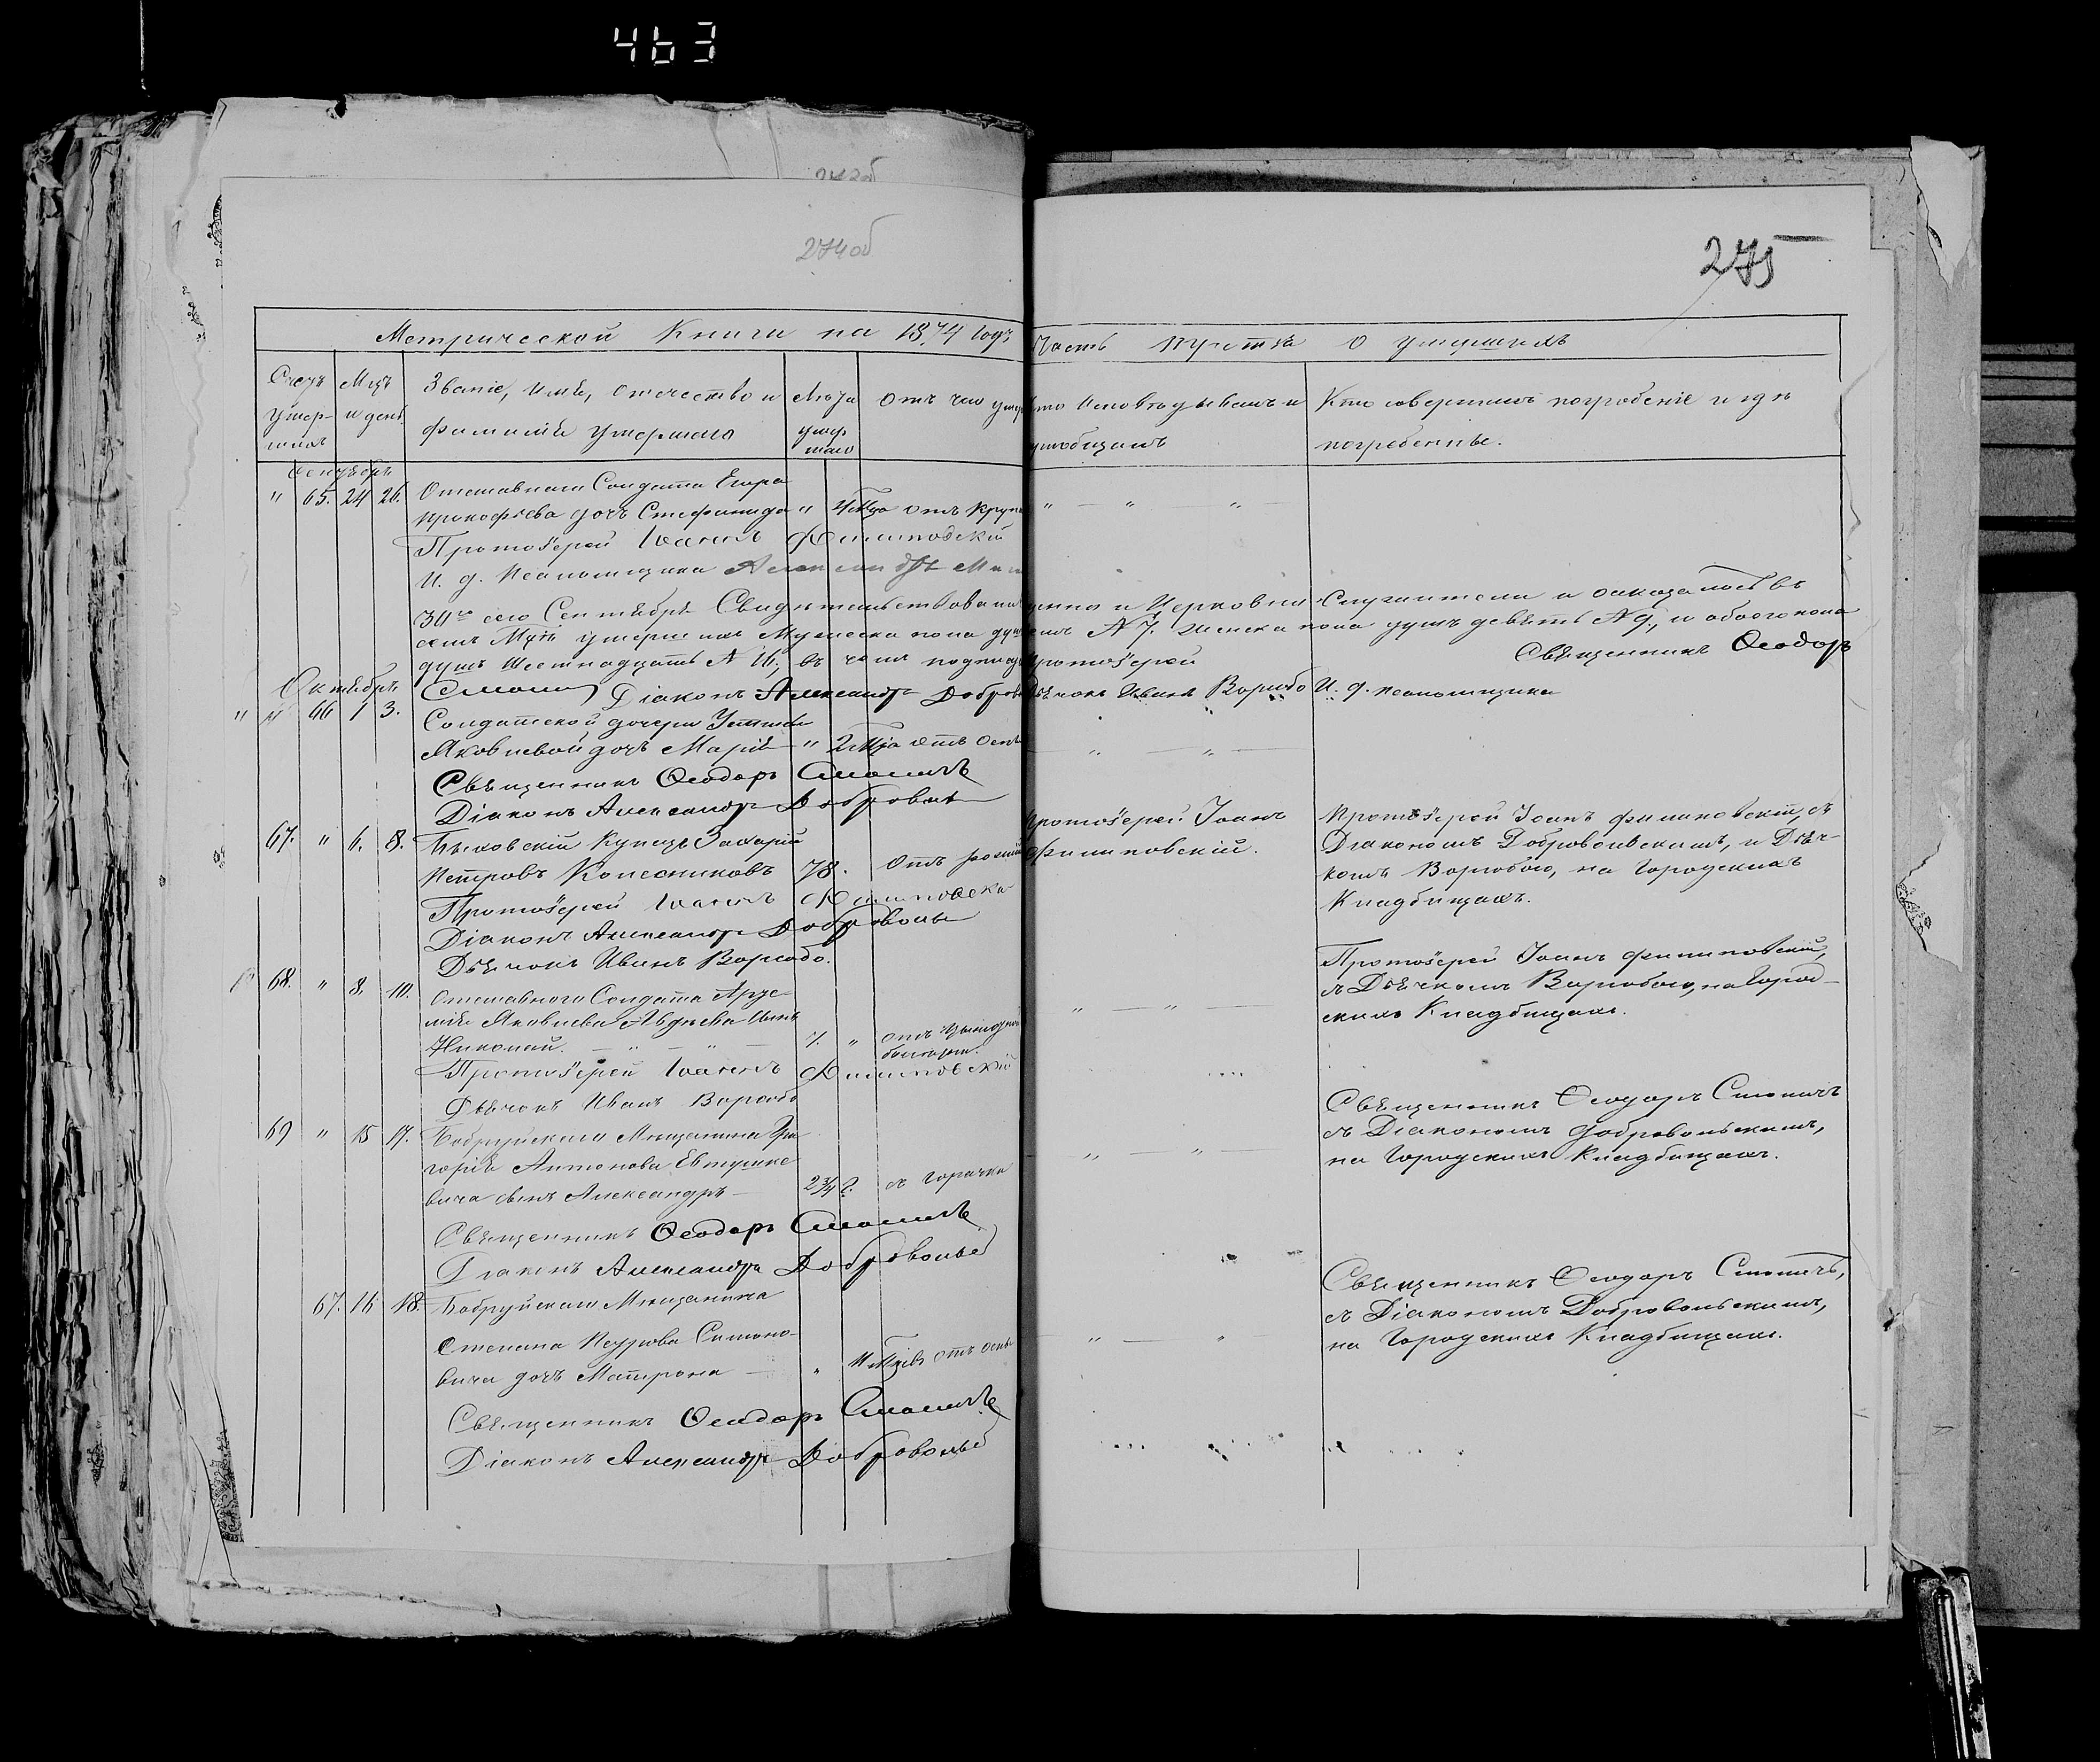 463
274об
275
Метрической Книги на 1874 годъ
Часть третья о умершихъ
Счетъ умер-шихъ
Мцъ и день
Званіе, имя, отечество и
фамилія умершаго
Лѣта умер-шаго
Отъ чего умеръ
Кто исповѣдывалъ и
пріобщалъ
Кто совершалъ погребеніе и гдѣ
погребены.
Сентябрь
" 65. 24 26. Отставнаго Солдата Егора
Прокофьева дочь Стефанида " 4 Мца отъ круп " — " "
Протоіерей Іоаннъ Филиповскій
И. д. Псаломщика Александръ
30го сего Сентября Свидѣтельствовано и Церковно Служители и оказалось въ
семъ Мцѣ умершихъ Мужеска пола душъ семь № 7. женска пола душъ девять № 9., и обоего пола
душъ шестнадцать № 16, въ чемъ подпис Протоіерей
Священникъ Ѳеодоръ
Октябрь
Діаконъ Александръ Добров Дьячокъ Иванъ Воробо И. д. псаломщика
" " 66 1 3. Солдатской дочери Устиніи
Яковлевой дочь Марія — " 2 Мца отъ оспы — " — " —
Священникъ Ѳеодоръ Смоличъ
Діаконъ Александръ Доброволь
67. " 6. 8. Быховскій Купецъ Захарій
Петровъ Колесниковъ 78. отъ
Протоіерей Іоанъ
Филиповскій.
Протоіерей Іоанъ Филиповскій, съ
Діакономъ Добровольскимъ, и Дьяч-
комъ Воробьою, на Городскихъ
Кладбищахъ.
Протоіерей Іоаннъ Филиповскі
Діаконъ Александръ Доброволь
Дьячокъ Иванъ Воробо.
68. " 8. 10. Отставнаго Солдата
Яковлева Авдѣева сынъ
Николай. — " — " — 7. " отъ
" — " —
Протоіерей Іоанъ Филиповскій,
съ Дьячкомъ Воробьою, на Город-
скихъ Кладбищахъ.
Протоіерей Іоаннъ Филиповскій
Дьячокъ Иванъ Воробо
69 " 15 17. Бобруйскаго Мѣщанина Гри
горія Антонова Евтушке
вича сынъ Александръ — 2¾ г. съ горячки
" — " —
Священникъ Ѳеодоръ Смоличъ
съ Діакономъ Добровольскимъ,
на Городскихъ Кладбищахъ.
Священникъ Ѳеодоръ Смоличъ
Діаконъ Александръ Доброволь
67. 16 18. Бобруйскаго Мѣщанина
Степана Симоно-
вича дочь Матрона — " отъ оспы
" — " —
Священникъ Ѳеодоръ Смоличъ,
съ Діакономъ Добровольскимъ,
на Городскихъ Кладбищахъ.
Священникъ Ѳеодоръ Смоличъ
Діаконъ Александръ Доброволь